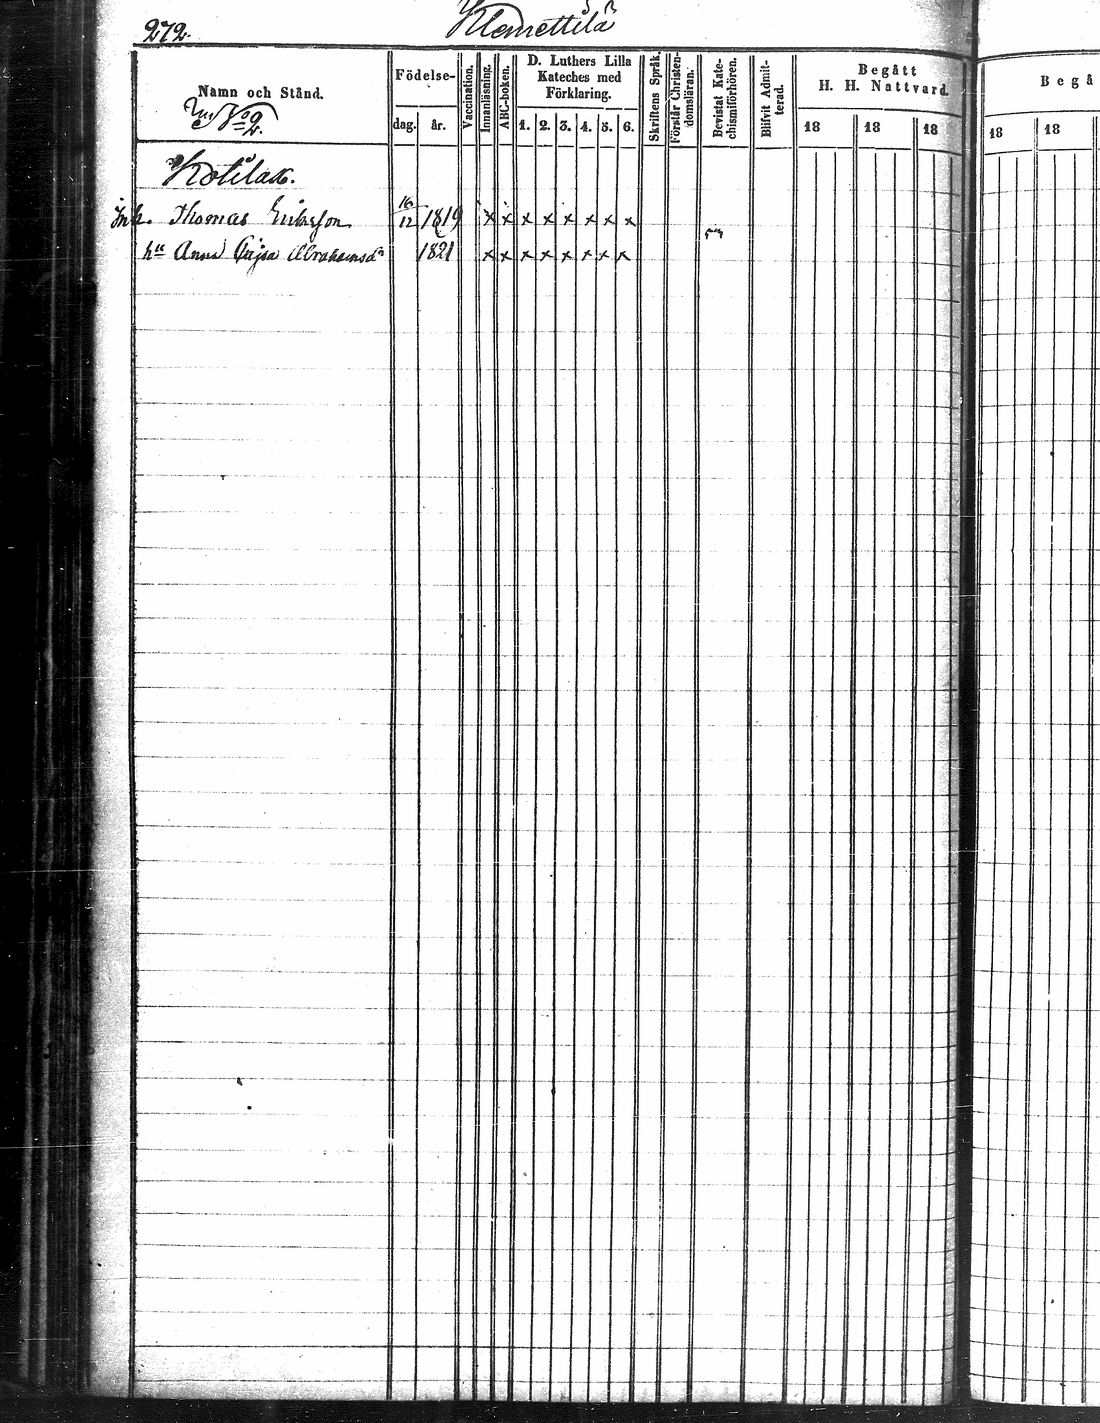 272.
Klemettilä
Namn och Stånd.
No 2.
Födelse-
dag.
år.
Vaccination.
Innanläsning.
ABC-boken.
D. Luthers Lilla
Kateches med
Förklaring.
1. 2. 3. 4. 5. 6.
Skriftens Språk.
Förstår Christen-
domsläran.
Bevistat Kate-
chismiförhören.
Blifvit Admit-
terad.
Begått
H. H. Nattvard.
18 18 18
Begå
18 18
Inh. Thomas Eriksson 16/12 1819 x x x x x x x x
hu Anna Cajsa Abrahamsdr 1821 x x x x x x x x